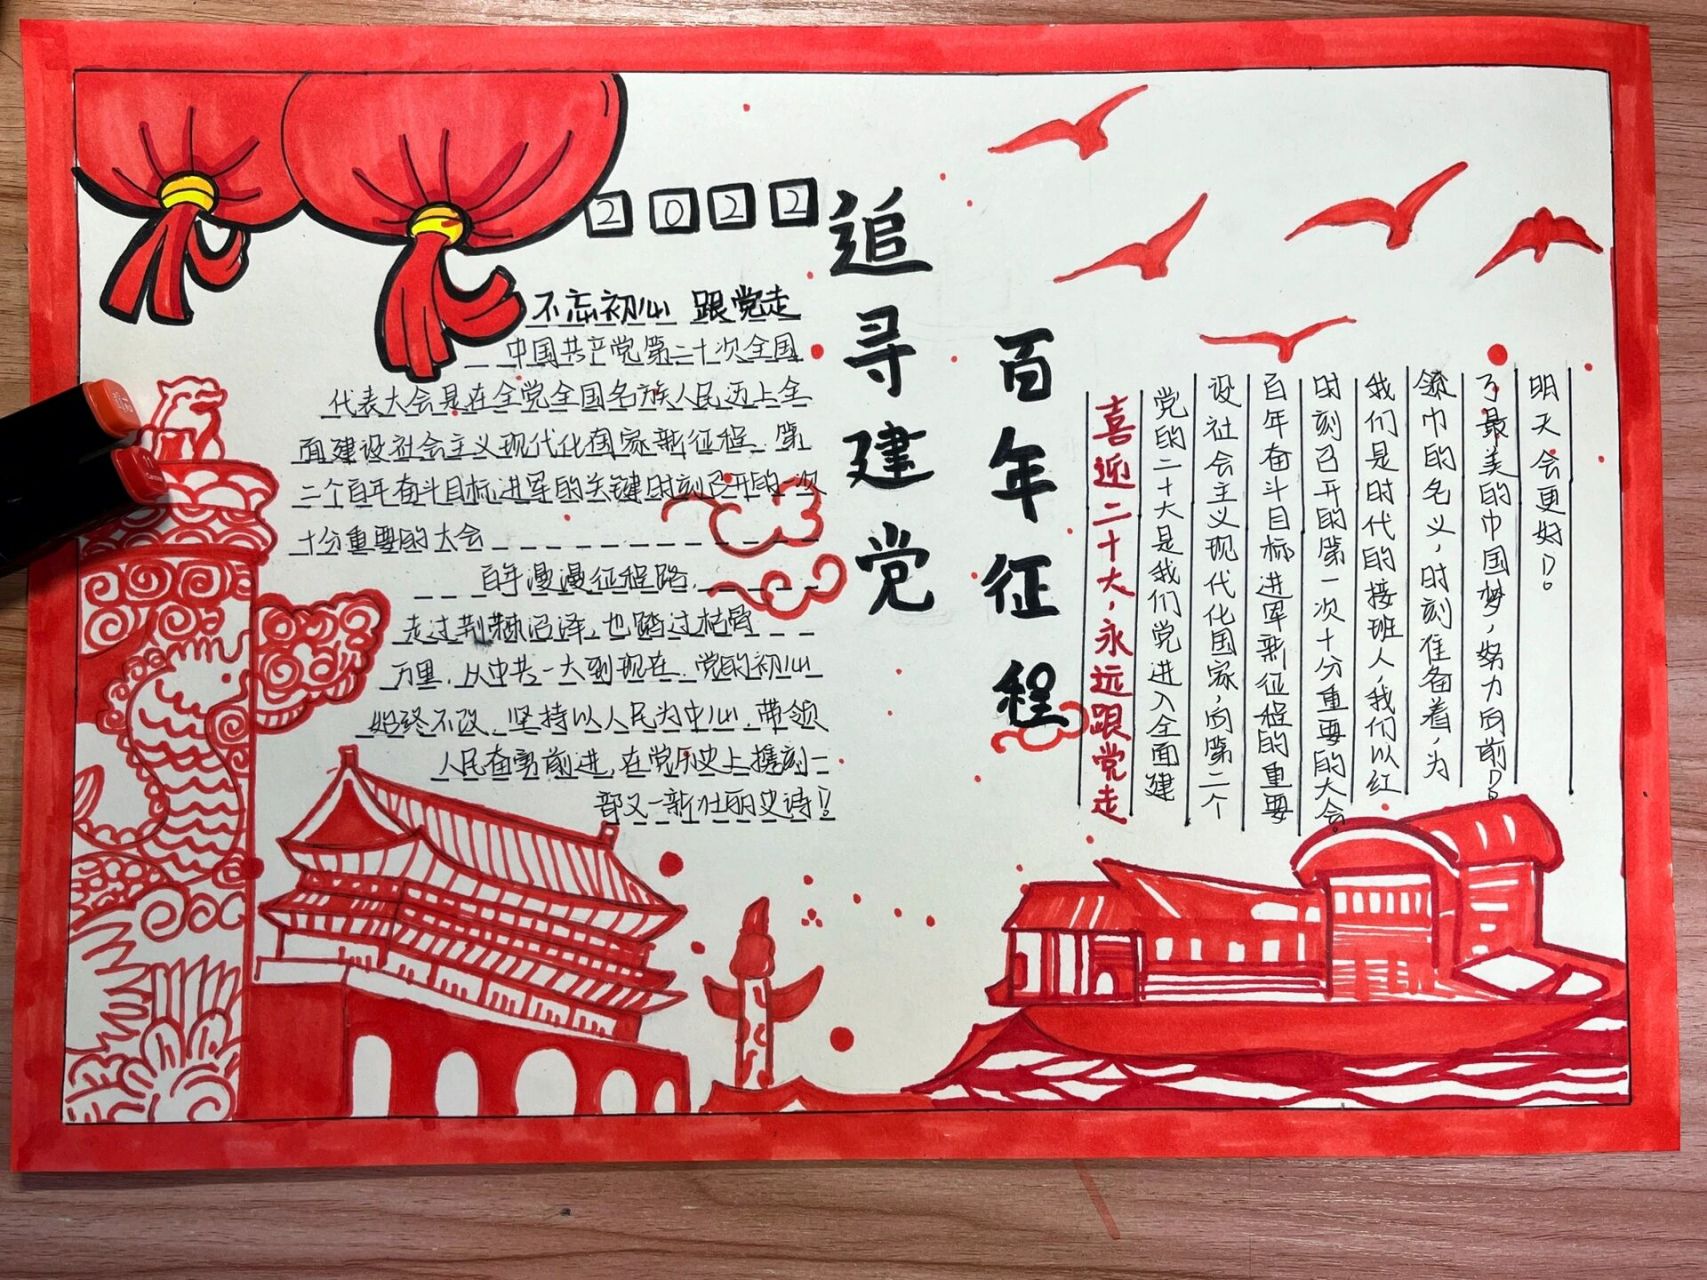 2022
追寻建党
百年征程
不忘初心 跟党走
中国共产党第二十次全国
代表大会是在全党全国各族人民迈上全
面建设社会主义现代化国家新征程.第
二个百年奋斗目标进军的关键时刻召开的一次
十分重要的大会
百年漫漫征程路,
走过荆棘沼泽,也踏过枯骨
万里,从中共一大到现在,党的初心
始终不改,坚持以人民为中心,带领
人民奋勇前进,在党历史上镌刻一
部又一新壮丽史诗!
喜迎二十大,永远跟党走
党的二十大是我们党进入全面建
设社会主义现代化国家,向第二个
百年奋斗目标进军新征程的重要
时刻召开的第一次十分重要的大会。
我们是时代的接班人,我们以红
领巾的名义,时刻准备着,为
了最美的中国梦,努力向前!
明天会更好!。